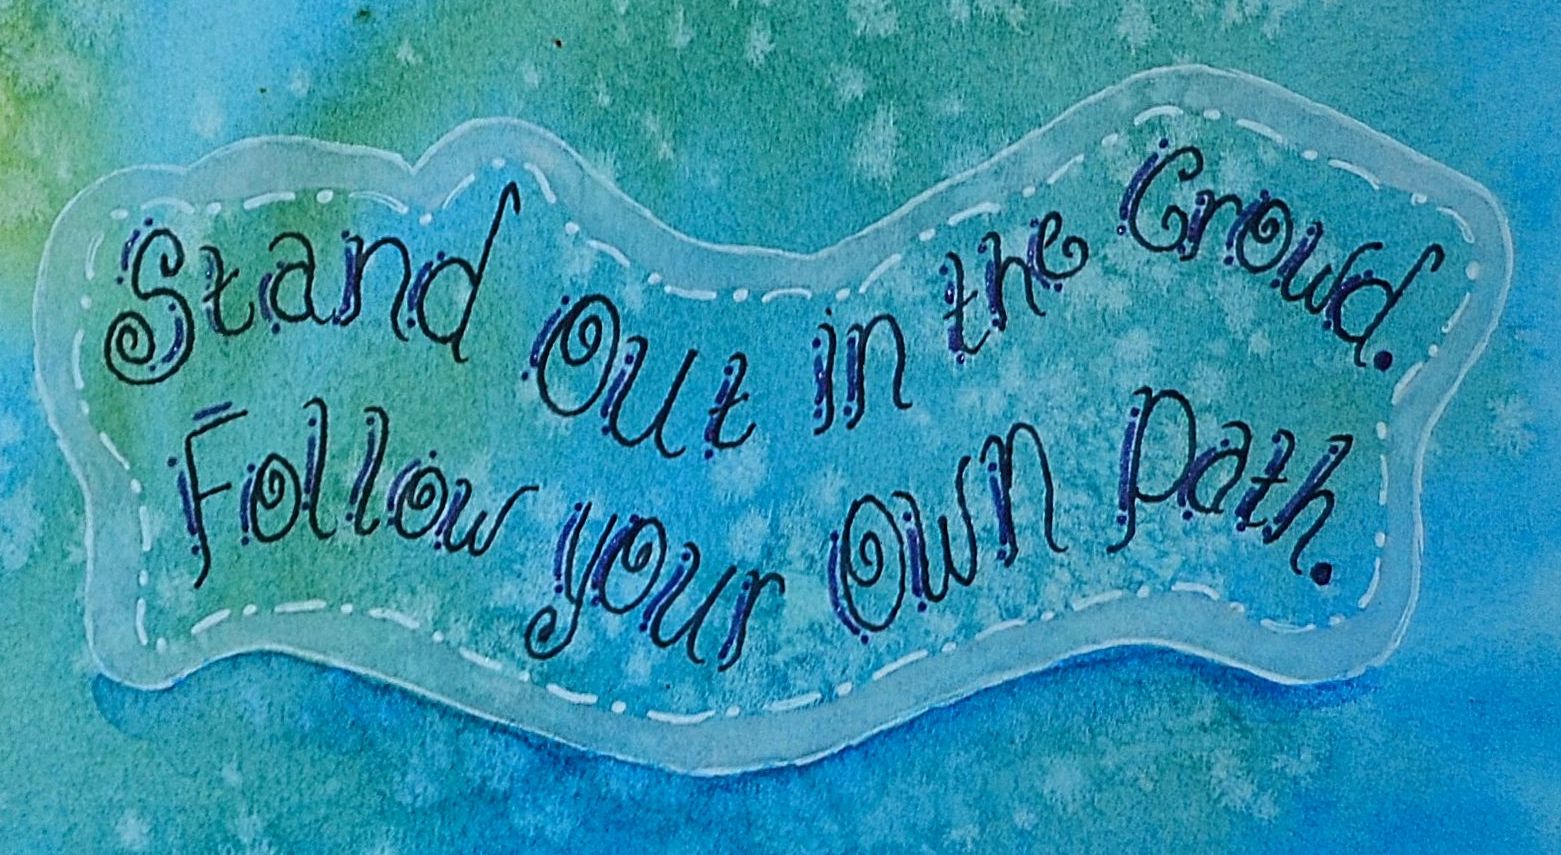 Stand Out in the Crowd.
Follow your Own Path.